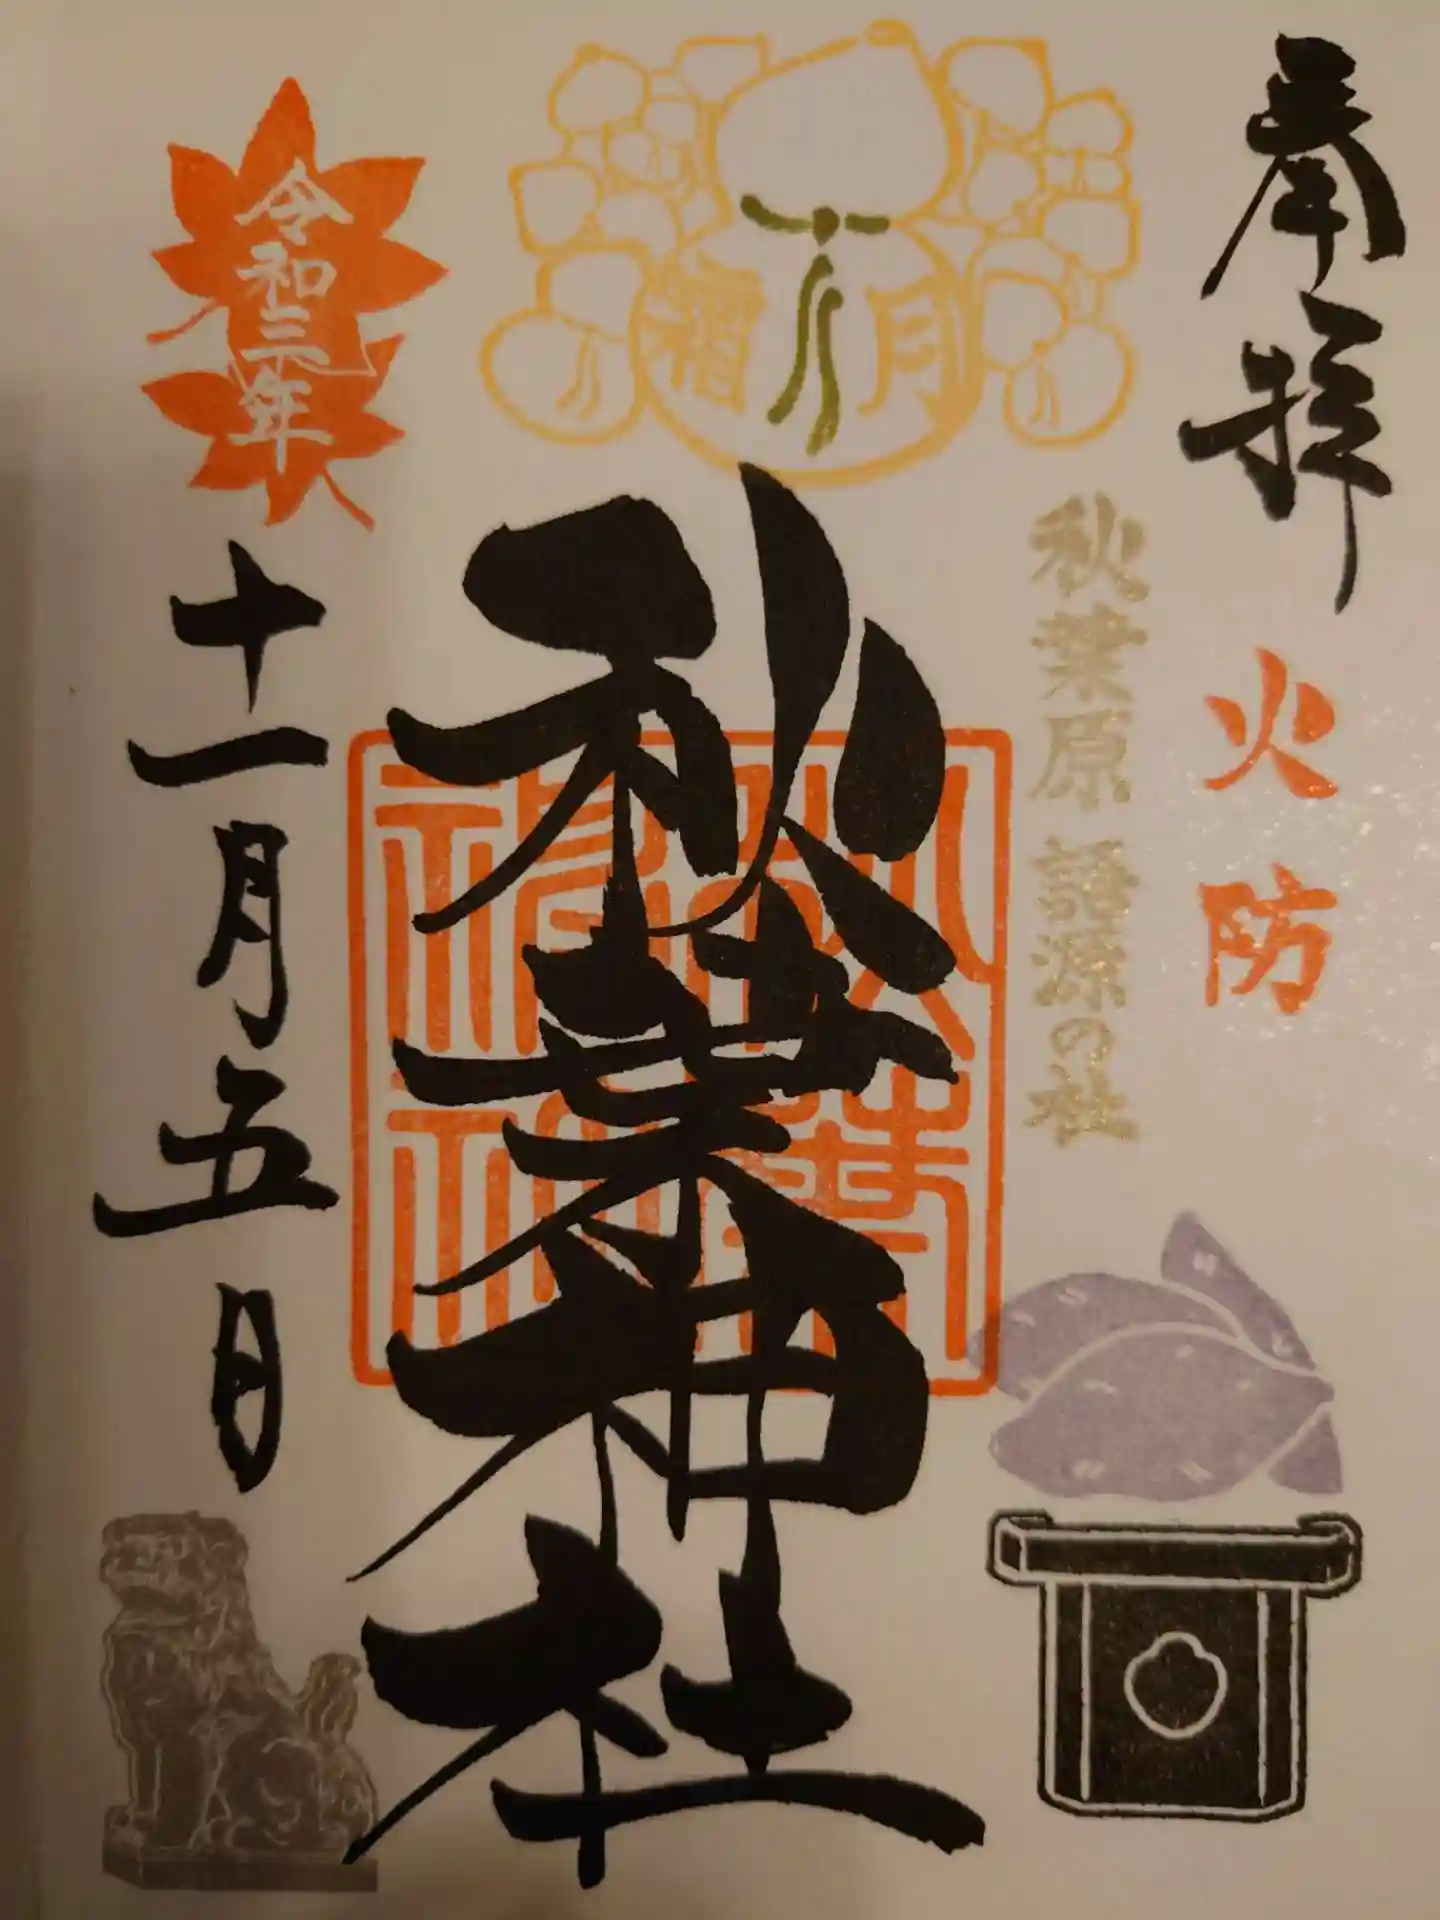 奉拝
火防
秋葉原 語源の社
霜月
秋葉神社
秋葉神社
令和三年
十一月五日